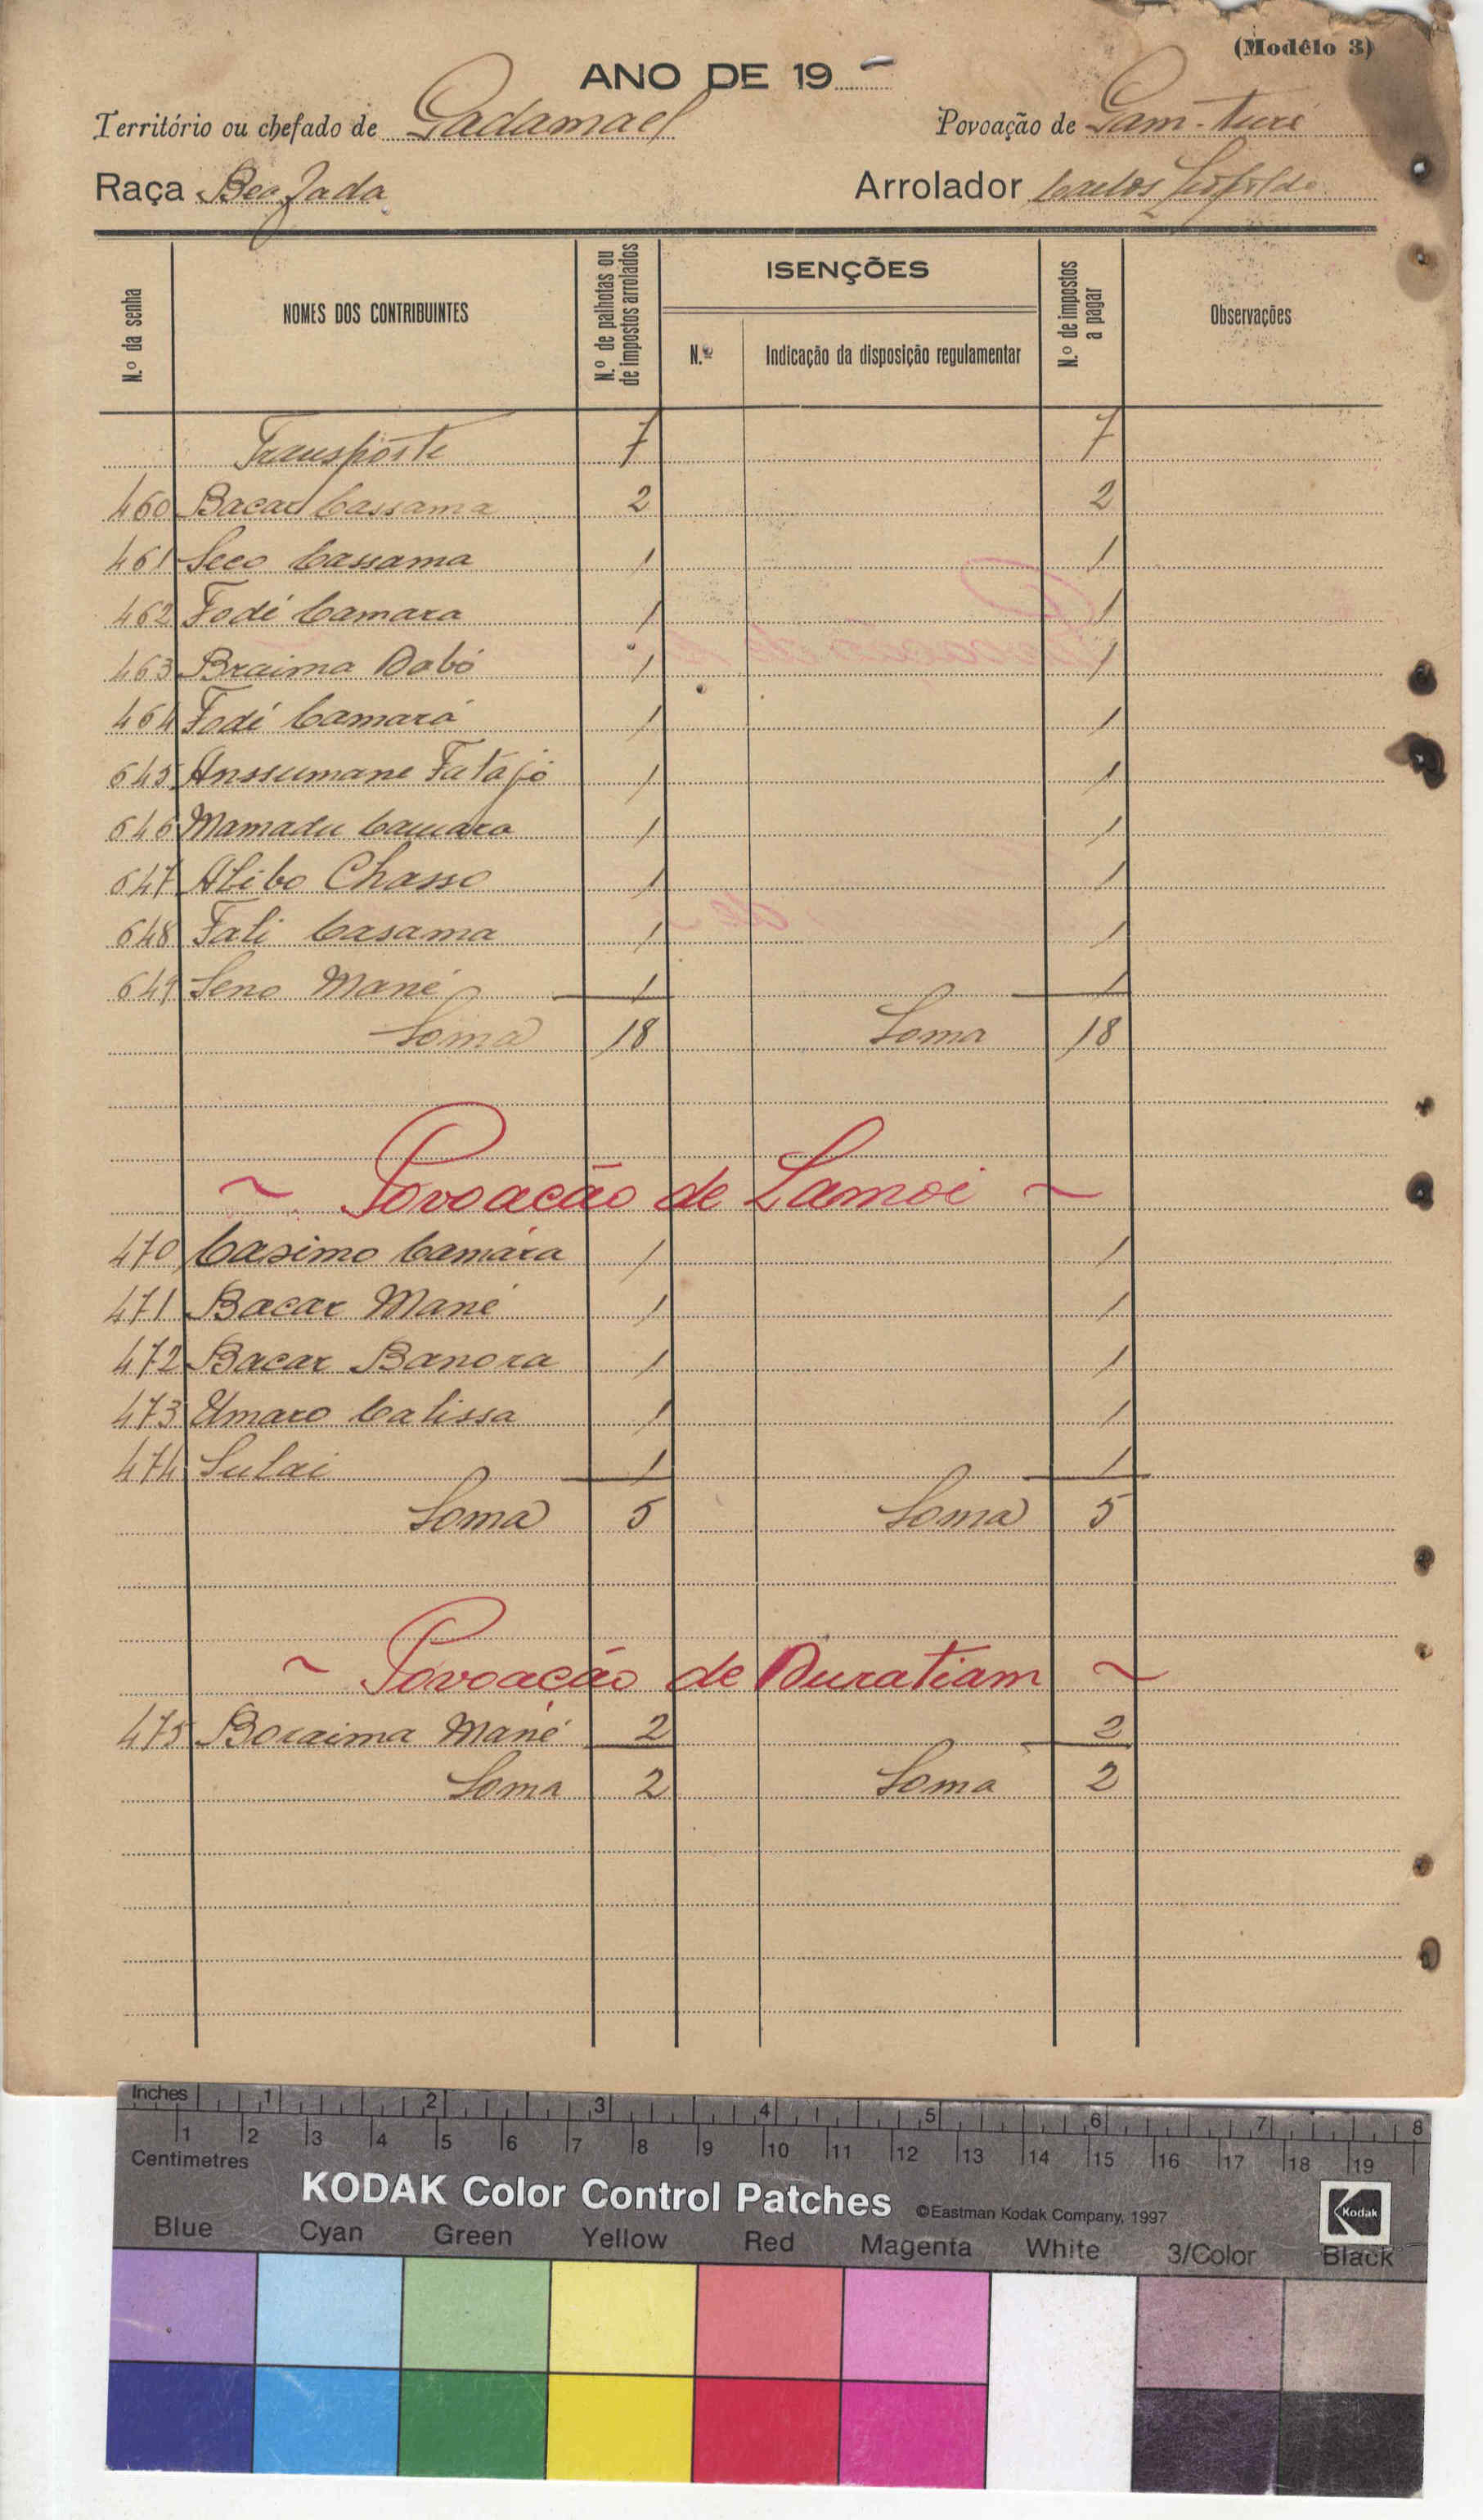 (Modêlo 3)
ANO DE 19 -
Território ou chefado de Gadamael Povoação de Gam-Ture
Raça Beafada Arrolador Carlos Leopoldo
N.º da senha NOMES DOS CONTRIBUINTES N.º de palhotas ou de impostos arrolados ISENÇÕES N.º de impostos a pagar Observações
N.º Indicação da disposição regulamentar
Transporte 7 7
460 Bacar Cassama 2 2
461 Seco Cassama 1 1
462 Fodé Camara 1 1
463 Braima Dabó 1 1
464 Fodé Camará 1 1
645 Anssumane Fatajó 1 1
646 Mamadu Camara 1 1
647 Alibo Chasso 1 1
648 Fali Casama 1 1
649 Seno Mané 1 1
Soma 18 Soma 18
~ Povoacão de Lamoi ~
470 Casimo Camára 1 1
471 Bacar Mané 1 1
472 Bacar Banora 1 1
473 Umaro Calissa 1 1
474 Sulai 1 1
Soma 5 Soma 5
~ Povoacão de Duratiam ~
475 Boraima Mané 2 2
Soma 2 Soma 2
Inches 1 2 3 4 5 6 7 8
Centimetres 1 2 3 4 5 6 7 8 9 10 11 12 13 14 15 16 17 18 19
KODAK Color Control Patches ©Eastman Kodak Company, 1997 Kodak
Blue Cyan Green Yellow Red Magenta White 3/Color Black